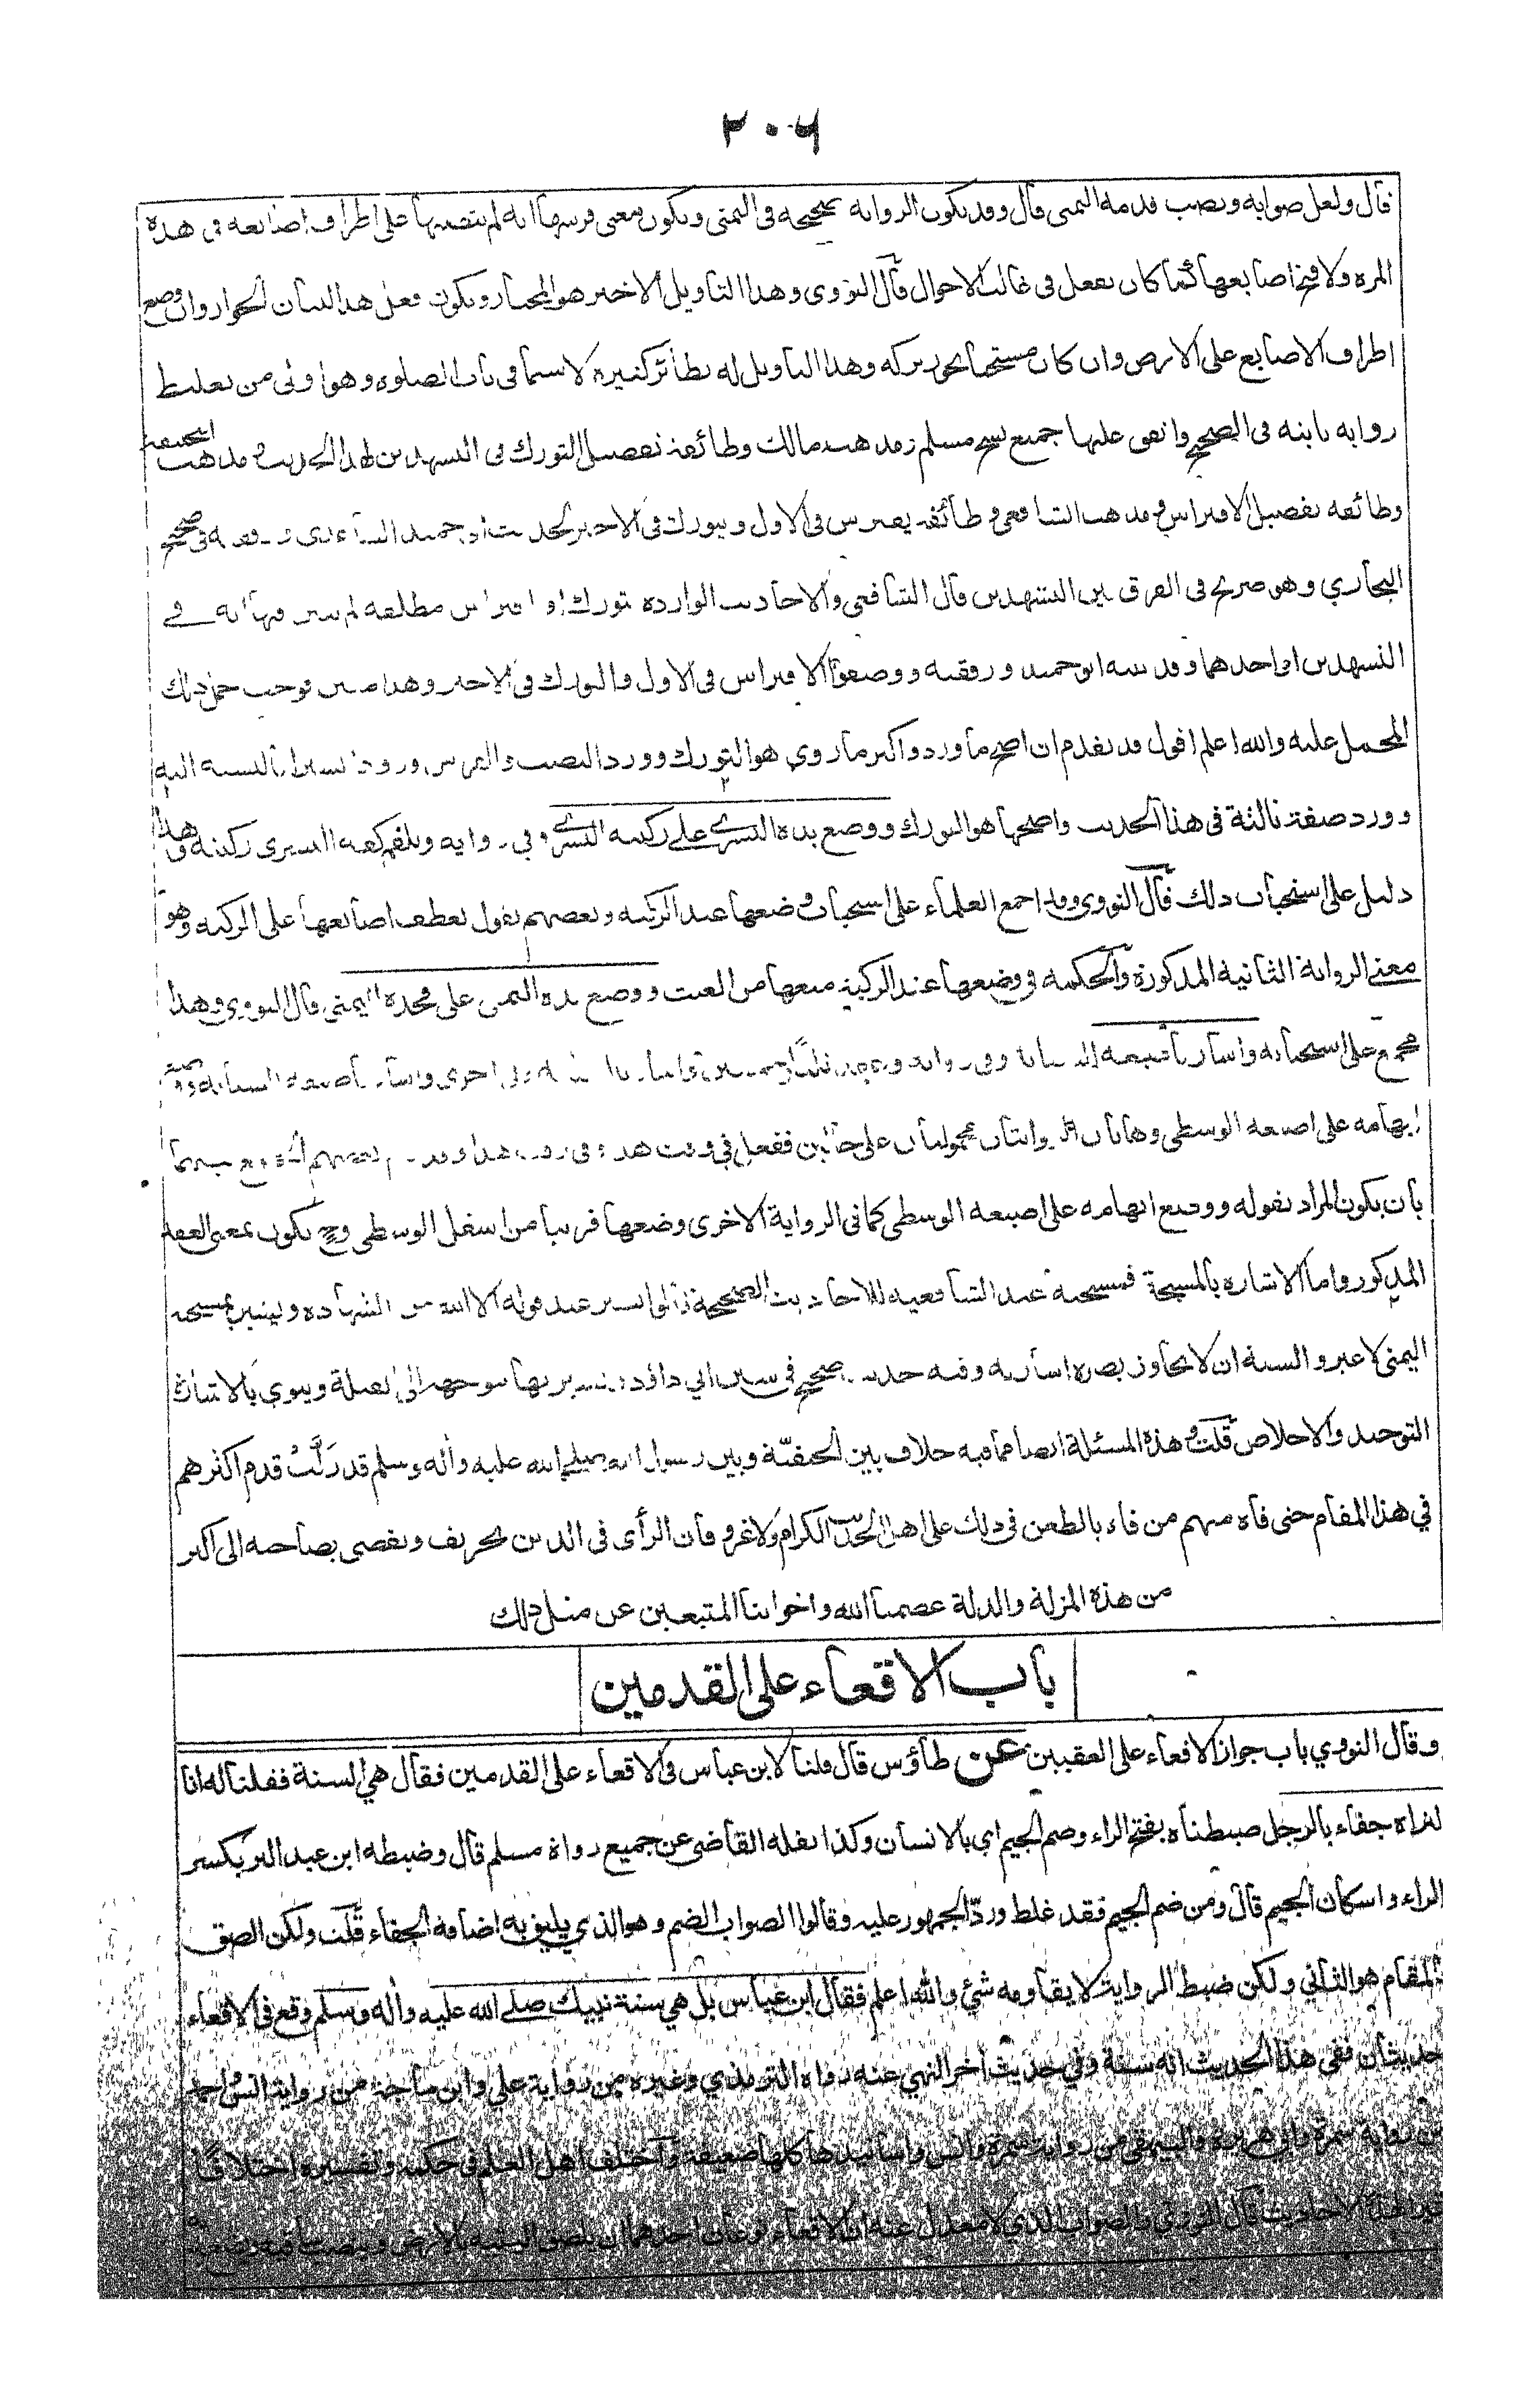 ٢٠٦
قال ولعل صوابه ونصب قدمه اليمنى قال وقد تكون الرواية صحيحة في اليمنى ويكون معنى فرشها انه لم ينصبها على اطراف اصابعه في هذه
المرة ولا فتح اصابعها كما كان يفعل في غالب الاحوال قال النووي وهذا التاويل الاخير هو المختار ويكون فعل هذا لبيان الجواز وان وضع
اطراف الاصابع على الارض وان كان مستحبا يجوز تركه وهذا التاويل له نظائر كثيرة لا سيما في باب الصلوة وهو اولى من تغليط
رواية ثابتة في الصحيح واتفق عليها جميع نسخ مسلم ومذهب مالك وطائفة تفضيل التورك في التشهدين لهذا الحديث ومذهب ابيحنيفة
وطائفه تفضيل الافتراش ومذهب الشافعي وطائفه يفترش في الاول ويتورك في الاخير لحديث ابي حميد الساعدي ورفقه في صحيح
البخاري وهو صريح في الفرق بين التشهدين قال الشافعي والاحاديث الواردة بتورك او افتراش مطلقه لم يبين فيها انه في
التشهدين او احدهما وقد بينه ابو حميد ورفقته ووصفوا الافتراش في الاول والتورك في الاخير وهذا مبين فوجب حمل ذلك
المجمل عليه والله اعلم اقول قد تقدم ان اصح ما ورد واكبر ما روي هو التورك وورد النصب والفرش ورودا يسيرا بالنسبة اليه
وورد صفة ثالثة في هذا الحديث واصحها هو التورك ووضع يده اليسرى على ركبته اليسرى وفي رواية ويلقم كفه اليسرى ركبته وهذا
دليل على استحباب ذلك قال النووي وقد اجمع العلماء على استحباب وضعها عند الركبة وبعضهم يقول بعطف اصابعها على الركبة وهو
معنى الرواية الثانية المذكورة والحكمة في وضعها عند الركبة منعها من العبث ووضع يده اليمنى على فخذه اليمنى قال النووي وهذا
مجمع على استحبابه واشار باصبعه السبابة وفي رواية وعقد ثلثا وخمسين واشار بالسبابة وفي اخرى واشار باصبعه السبابة ووضع
ابهامه على اصبعه الوسطى وهاتان الروايتان محمولتان على حالين ففعل في وقت هذا وفي وقت هذا وقد رام بعضهم الجمع بينهما
بان يكون المراد بقوله ووضع ابهامه على اصبعه الوسطى كما في الرواية الاخرى وضعها قريبا من اسفل الوسطى وح يكون بمعنى العقد
المذكور واما الاشارة بالمسبحة فمستحبة عند الشافعيه للاحاديث الصحيحة قالوا يشير عند قوله الا الله من الشهادة ويشير بمسبحة
اليمنى لا غير والسنة ان لا يجاوز بصره اشارته وفيه حديث صحيح في سنن ابي داود ويشير بها موجهة الى القبلة وينوي بالاشارة
التوحيد والاخلاص قلت وهذه المسئلة ايضا مما فيه خلاف بين الحنفيّة وبين رسول الله صلى الله عليه وآله وسلم قد زَلَّتْ قدم اكثرهم
في هذا المقام حتى فاه منهم من فاء بالطعن في ذلك على اهل الحديث الكرام ولا غرو فان الرأى في الدين تحريف ويفضى بصاحبه الى اكبر
من هذه المزلة والذلة عصمنا الله واخواننا المتبعين عن مثل ذلك
باب الاقعاء على القدمين
وقال النووي باب جواز الاقعاء على العقبين عن طاؤس قال قلنا لابن عباس في الاقعاء على القدمين فقال هي السنة فقلنا له انا
لنراه جفاء بالرجل ضبطناه بفتح الراء وضم الجيم اى بالانسان وكذا نقله القاضى عن جميع رواة مسلم قال وضبطه ابن عبد البر بكسر
الراء واسكان الجيم قال ومن ضم الجيم فقد غلط وردّ الجمهور عليه وقالوا الصواب الضم وهو الذي يليق به اضافة الجفاء قلت ولكن الصق
بالمقام هو الثاني ولكن ضبط الرواية لا يقاومه شئ والله اعلم فقال ابن عباس بل هي سنة نبيك صلى الله عليه وآله وسلم وقع في الاقعاء
حديثان ففى هذا الحديث انه سنة وفي حديث آخر النهي عنه رواه الترمذي وغيره من رواية علي وابن ماجة من رواية انس واحمد
من رواية سمرة وابي هريرة والبيهقي من رواية سمرة وانس واسانيدها كلها ضعيفة واختلف اهل العلم في حكمه وتفسيره اختلافا
كثيرا لهذه الاحاديث قال النووي والصواب الذي لا معدل عنه ان الاقعاء نوعان احدهما ان يلصق اليتيه بالارض وينصب ساقيه